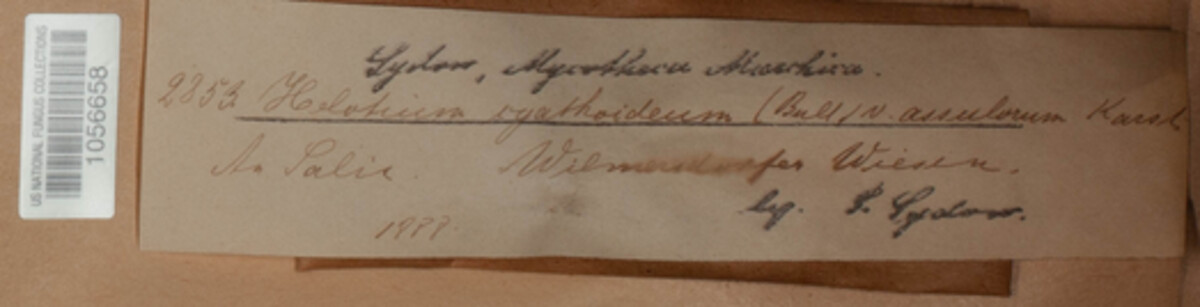 US NATIONAL FUNGUS COLLECTIONS
1056658
Sydow, Mycotheca Marchica.
2853. Helotium cyathoideum (Bull) v. assulorum Karst.
An Salix. Wilmersdorfer Wiesen.
leg. P. Sydow.
1888.